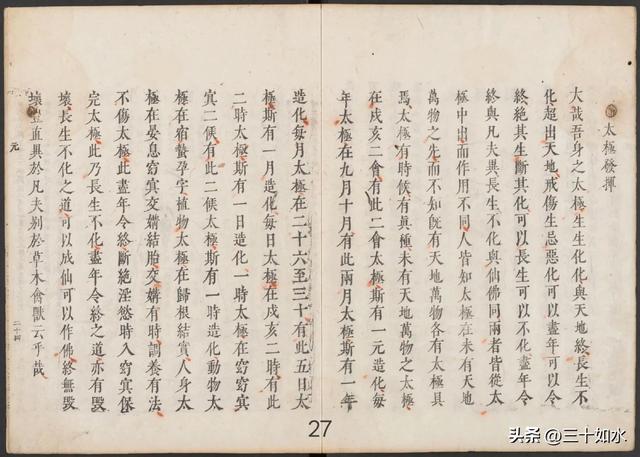 太極發揮
大哉吾身之太極生生化化與天地終長生不
化超出天地戒傷生忌惡化可以盡年可以令
終絕其生斷其化可以長生可以不化盡年令
終與凡夫異長生不化與仙佛同兩者皆從太
極中出而作用不同人皆知太極在未有天地
萬物之先而不知旣有天地萬物各有太極具
焉太極有時候有眞種未有天地萬物之太極
在戌亥二會有此二會太極斯有一元造化每
年太極在九月十月有此兩月太極斯有一年
造化每月太極在二十六至三十有此五日太
極斯有一月造化每日太極在戌亥二時有此
二時太極斯有一日造化一時太極在窈窈冥
冥二候有此二候太極斯有一時造化動物太
極在宿蟄孕字植物太極在歸根結實人身太
極在晏息窈冥交媾結胎交媾有時調養有法
不傷太極此盡年令終斷絕淫慾時入窈冥保
完太極此乃長生不化之道盡年令終之道亦有毁
壞長生不化之道可以成仙可以作佛終無毁
壞豈直異於凡夫别於草木禽獸云乎哉
元
二十四
27
头条 @三十如水